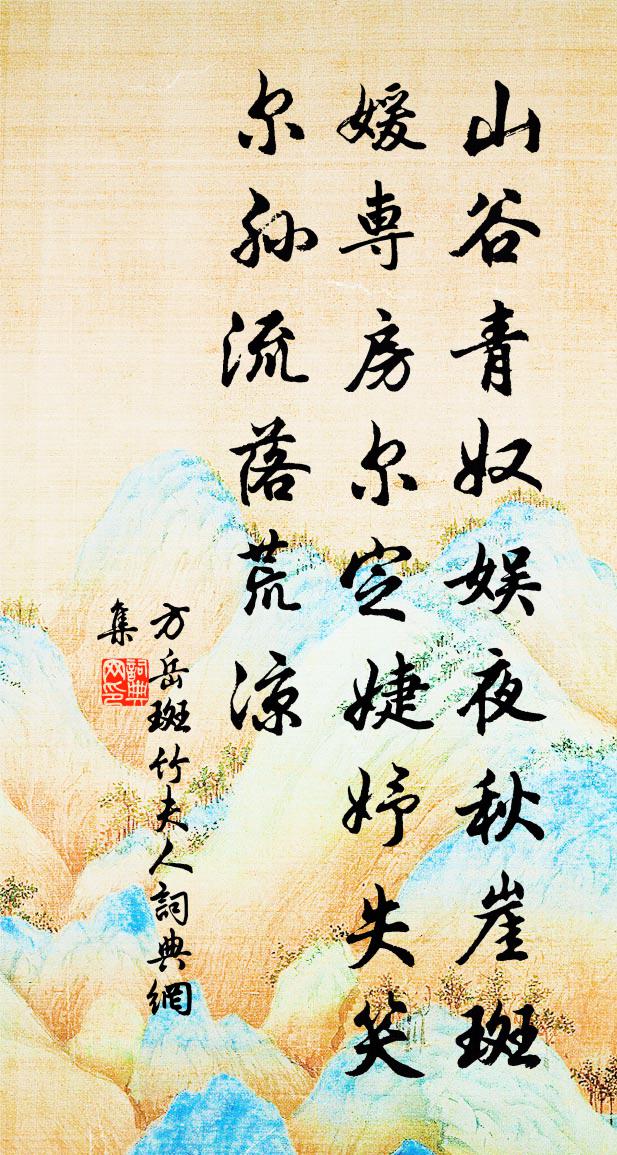 山谷青奴娱夜秋崖斑
媛専房尔定婕妤失笑
尔孙流落荒凉
方岳斑竹夫人詞典網
集
詞典網印